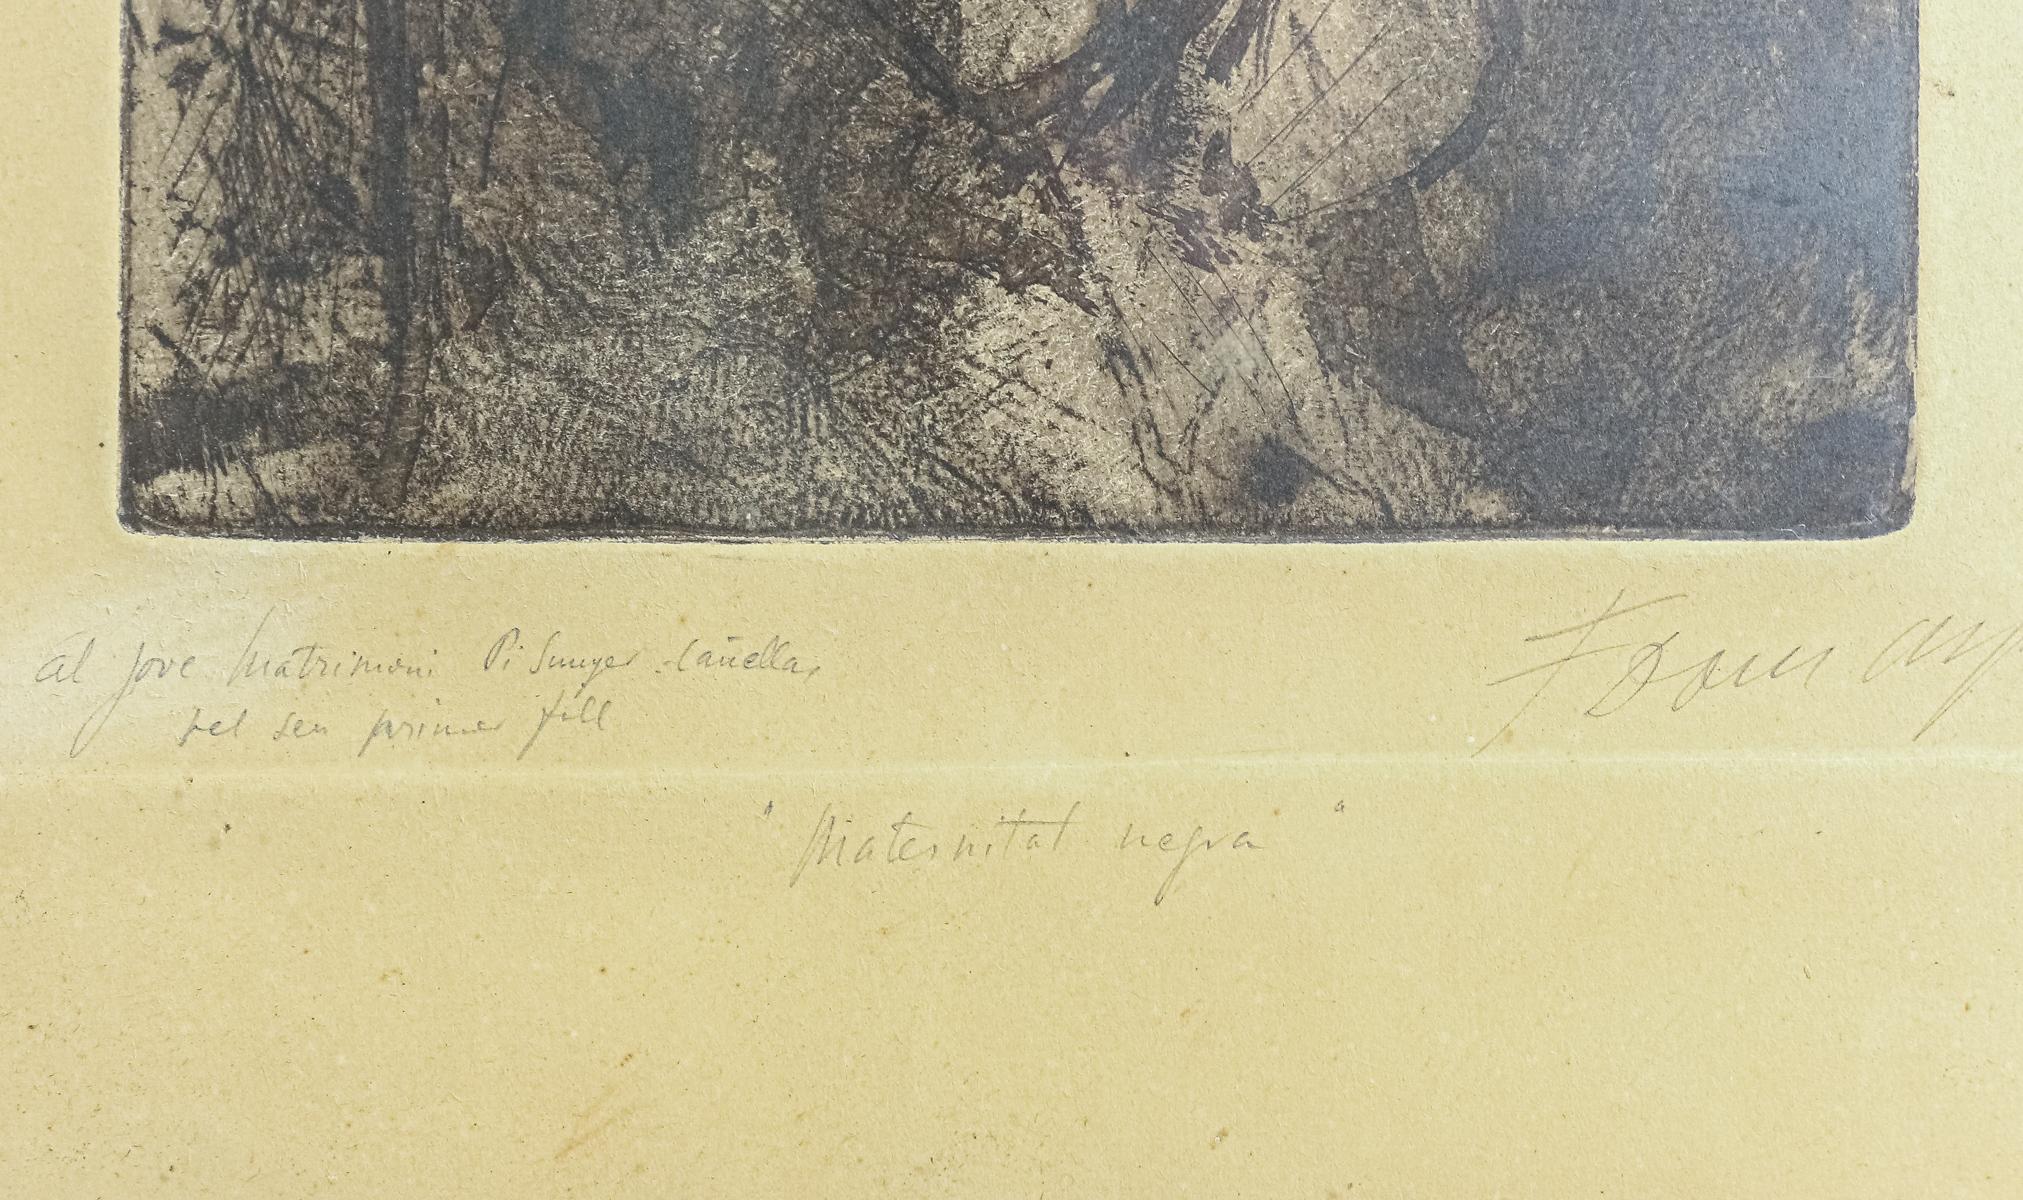 al jove Matrimoni Pi Sunyer-Cañellas
pel seu primer fill
"Maternitat negra"